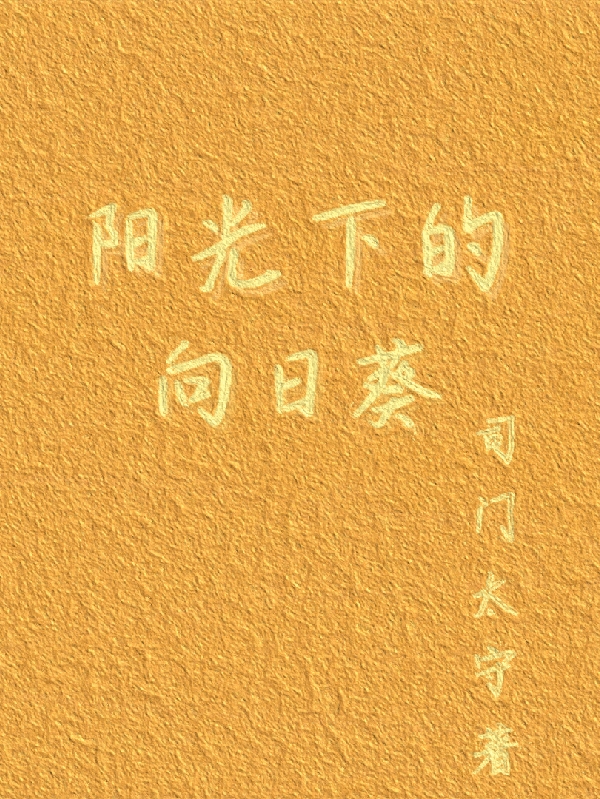 阳光下的
向日葵
司门太守著